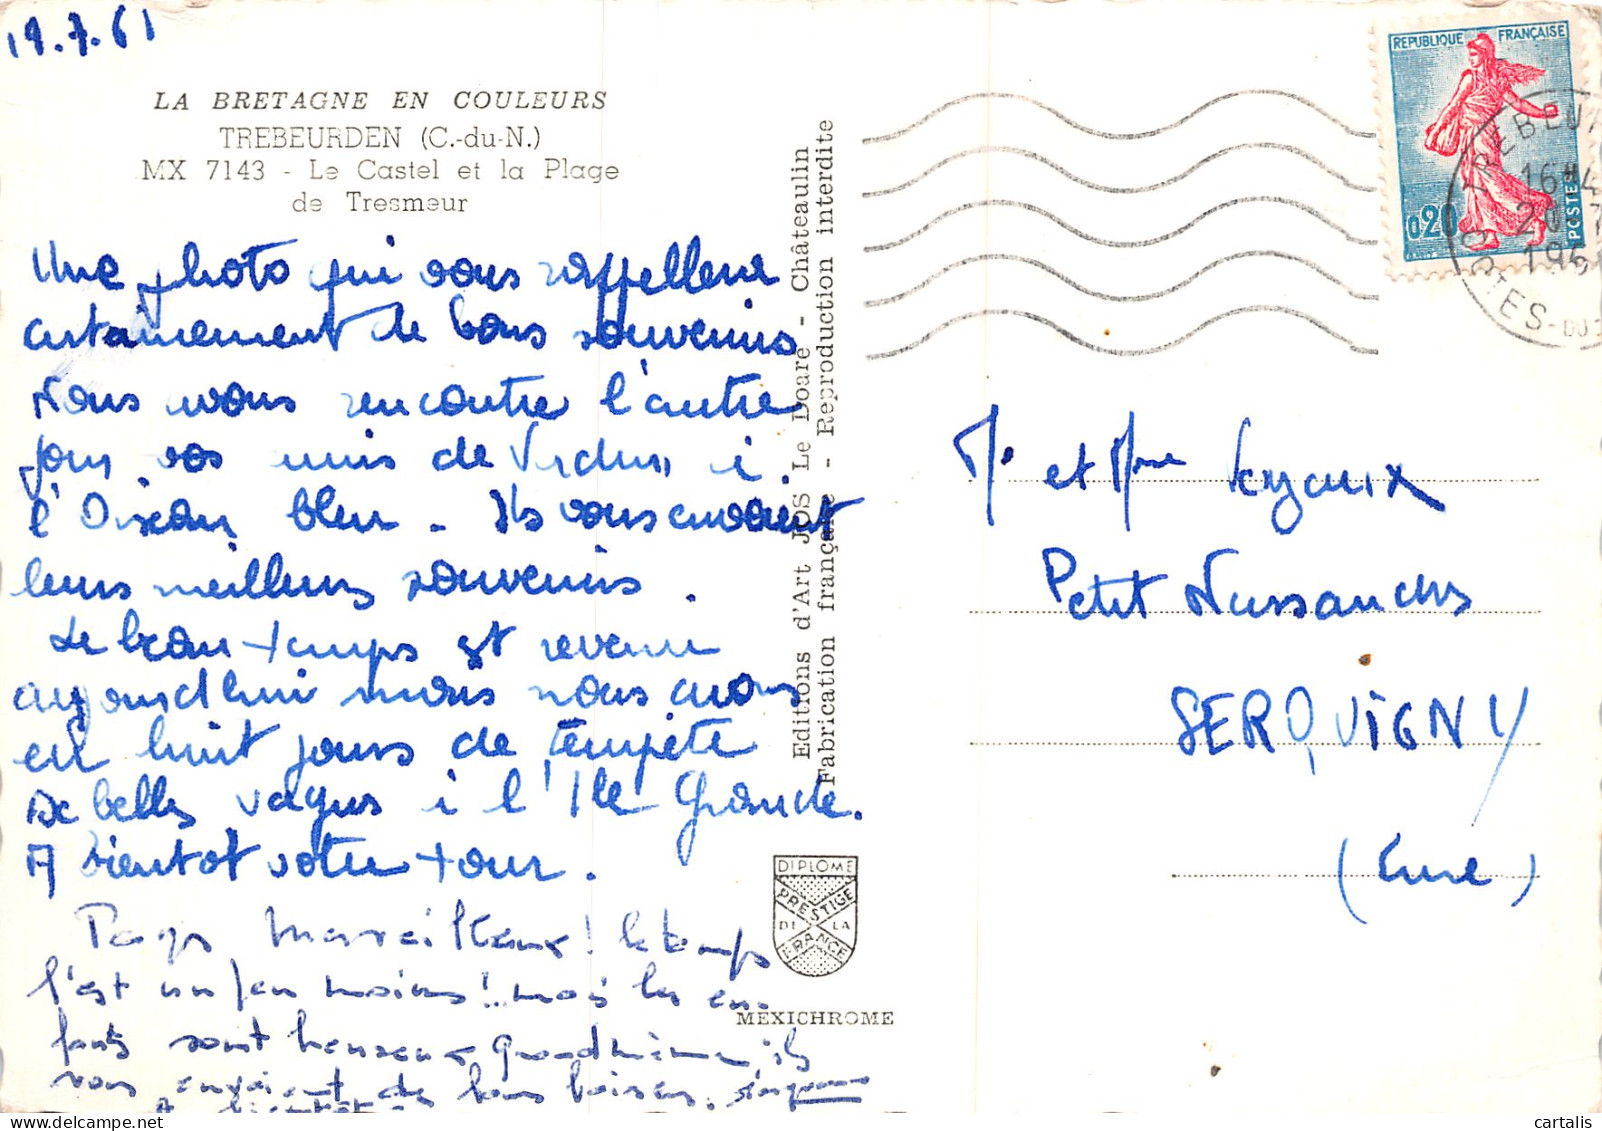 19.7.61
LA BRETAGNE EN COULEURS
TREBEURDEN (C.-du-N.)
MX 7143 - Le Castel et la Plage
de Tresmeur
Une photo qui vous rappellera
certainement de bons souvenirs
Nous avons rencontré l'autre
jour vos amis de Verdun à
l'Oiseau bleu. Ils vous envoient
leurs meilleurs souvenirs.
Le beau temps est revenu
aujourd'hui mais nous avons
eu huit jours de tempête
De belles vagues à l'Ile Grande.
A bientôt votre tour.
Pays merveilleux! le temps
l'est un peu moins!... mais les en-
fants sont heureux grand'mère ils
vous envoient de bons baisers.
A bientôt
Editions d'Art JOS Le Doaré - Châteaulin
Fabrication française - Reproduction interdite
DIPLOME
PRESTIGE
DE LA
FRANCE
MEXICHROME
REPUBLIQUE FRANÇAISE
0,20
POSTES
TREBEUR
16H4
20-7
196
COTES-DU-
Mr et Mme
Petit Nassandres
SERQUIGNY
(Eure)
cartalis.com